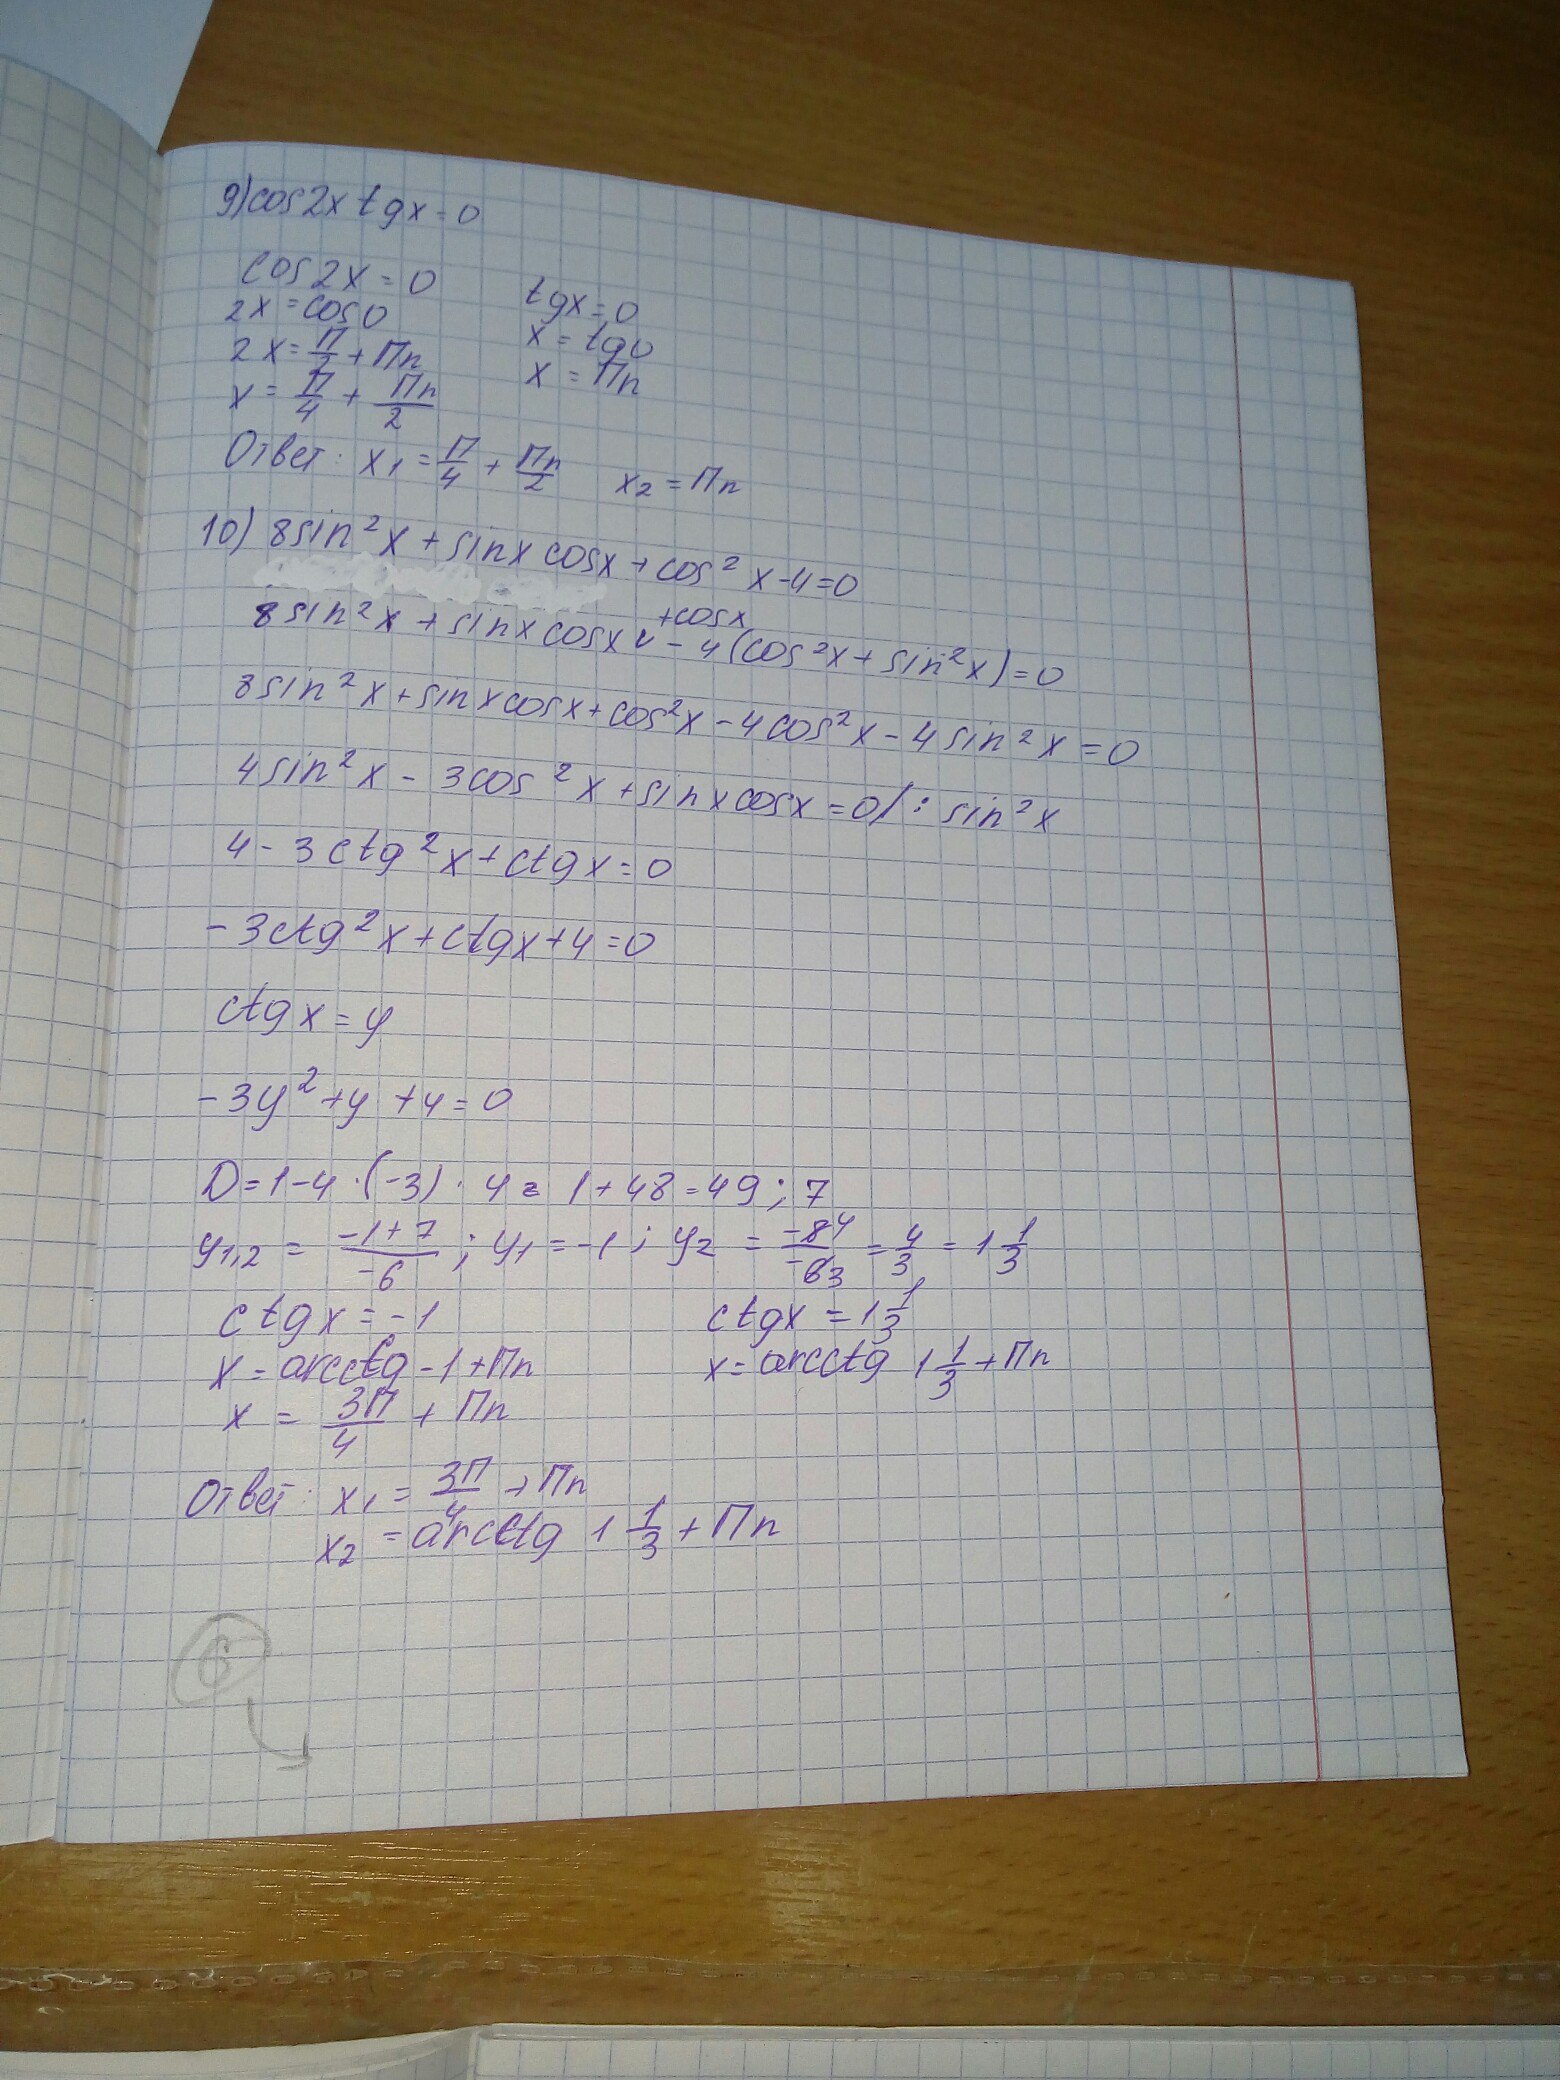 9) cos2x tgx=0
cos2x=0 tgx=0
2x=cos0 x=tg0
2x=π/2+πn x=πn
x=π/4+πn/2
Ответ: x₁=π/4+πn/2 x₂=πn
10) 8sin²x+sinx cosx+cos²x-4=0
+cosx
8sin²x+sinx cosx v -4(cos²x+sin²x)=0
8sin²x+sinx cosx+cos²x-4cos²x-4sin²x=0
4sin²x-3cos²x+sinx cosx=0/:sin²x
4-3ctg²x+ctgx=0
-3ctg²x+ctgx+4=0
ctgx=y
-3y²+y+4=0
D=1-4·(-3)·4=1+48=49; 7
y₁,₂=(-1+7)/-6; y₁=-1; y₂=-8 4/-6 3=4/3=1 1/3
ctgx=-1 ctgx=1 1/3
x=arcctg-1+πn x=arcctg 1 1/3+πn
x=3π/4+πn
Ответ: x₁=3π/4+πn
x₂=arcctg 1 1/3+πn
6